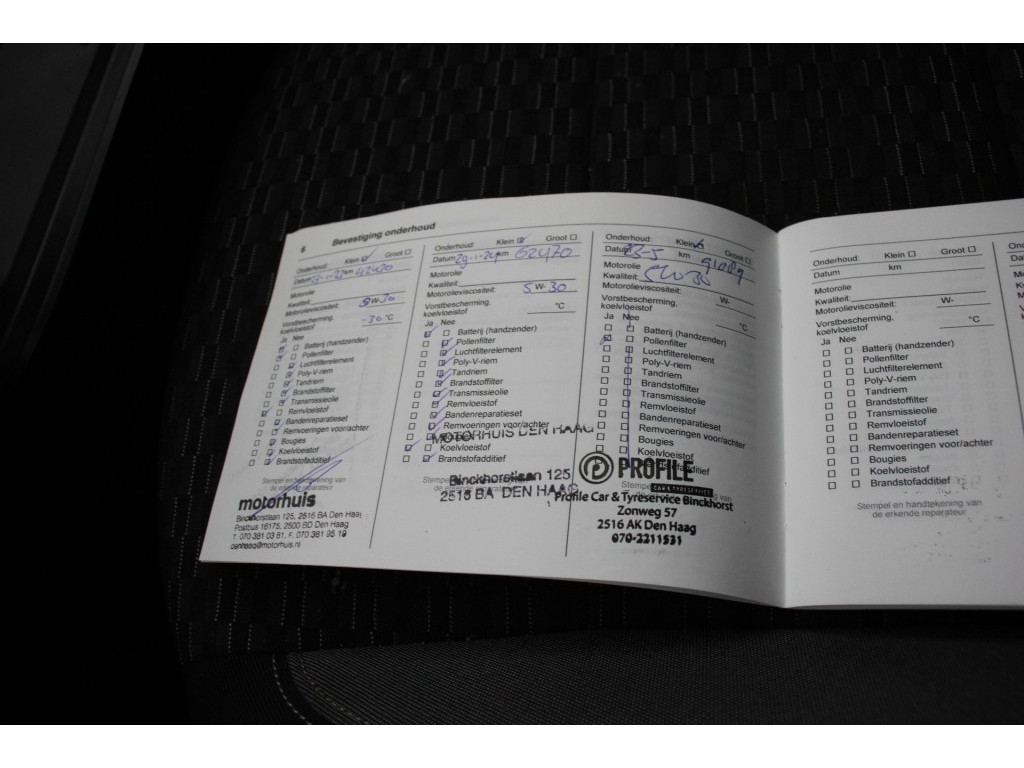 6 Bevestiging onderhoud
Onderhoud: Klein Groot
Datum km 42420
Motorolie
Kwaliteit:
Motorolieviscositeit: 5 W-30
Vorstbescherming,
koelvloeistof -36 °C
Ja Nee
Batterij (handzender)
Pollenfilter
Luchtfilterelement
Poly-V-riem
Tandriem
Brandstoffilter
Transmissieolie
Remvloeistof
Bandenreparatieset
Remvoeringen voor/achter
Bougies
Koelvloeistof
Brandstofadditief
Stempel en handtekening van
de erkende reparateur
motorhuis
Binckhorstlaan 125, 2516 BA Den Haag
Postbus 16175, 2500 BD Den Haag
T. 070 381 03 81, F. 070 381 95 19
denhaag@motorhuis.nl
Onderhoud: Klein Groot
Datum 29-1-24 km 62470
Motorolie
Kwaliteit:
Motorolieviscositeit: 5 W-30
Vorstbescherming,
koelvloeistof °C
Ja Nee
Batterij (handzender)
Pollenfilter
Luchtfilterelement
Poly-V-riem
Tandriem
Brandstoffilter
Transmissieolie
Remvloeistof
Bandenreparatieset
Remvoeringen voor/achter
Bougies
Koelvloeistof
Brandstofadditief
MOTORHUIS DEN HAAG
Binckhorstlaan 125
2516 BA DEN HAAG
Onderhoud: Klein Groot
Datum 23-5 km
Motorolie
Kwaliteit: 5W30
Motorolieviscositeit: W-
Vorstbescherming,
koelvloeistof °C
Ja Nee
Batterij (handzender)
Pollenfilter
Luchtfilterelement
Poly-V-riem
Tandriem
Brandstoffilter
Transmissieolie
Remvloeistof
Bandenreparatieset
Remvoeringen voor/achter
Bougies
Koelvloeistof
Brandstofadditief
PROFILE
CAR & TYRESERVICE
Profile Car & Tyreservice Binckhorst
Zonweg 57
2516 AK Den Haag
070-2211531
Onderhoud: Klein Groot
Datum km
Motorolie
Kwaliteit:
Motorolieviscositeit: W-
Vorstbescherming,
koelvloeistof °C
Ja Nee
Batterij (handzender)
Pollenfilter
Luchtfilterelement
Poly-V-riem
Tandriem
Brandstoffilter
Transmissieolie
Remvloeistof
Bandenreparatieset
Remvoeringen voor/achter
Bougies
Koelvloeistof
Brandstofadditief
Stempel en handtekening van
de erkende reparateur